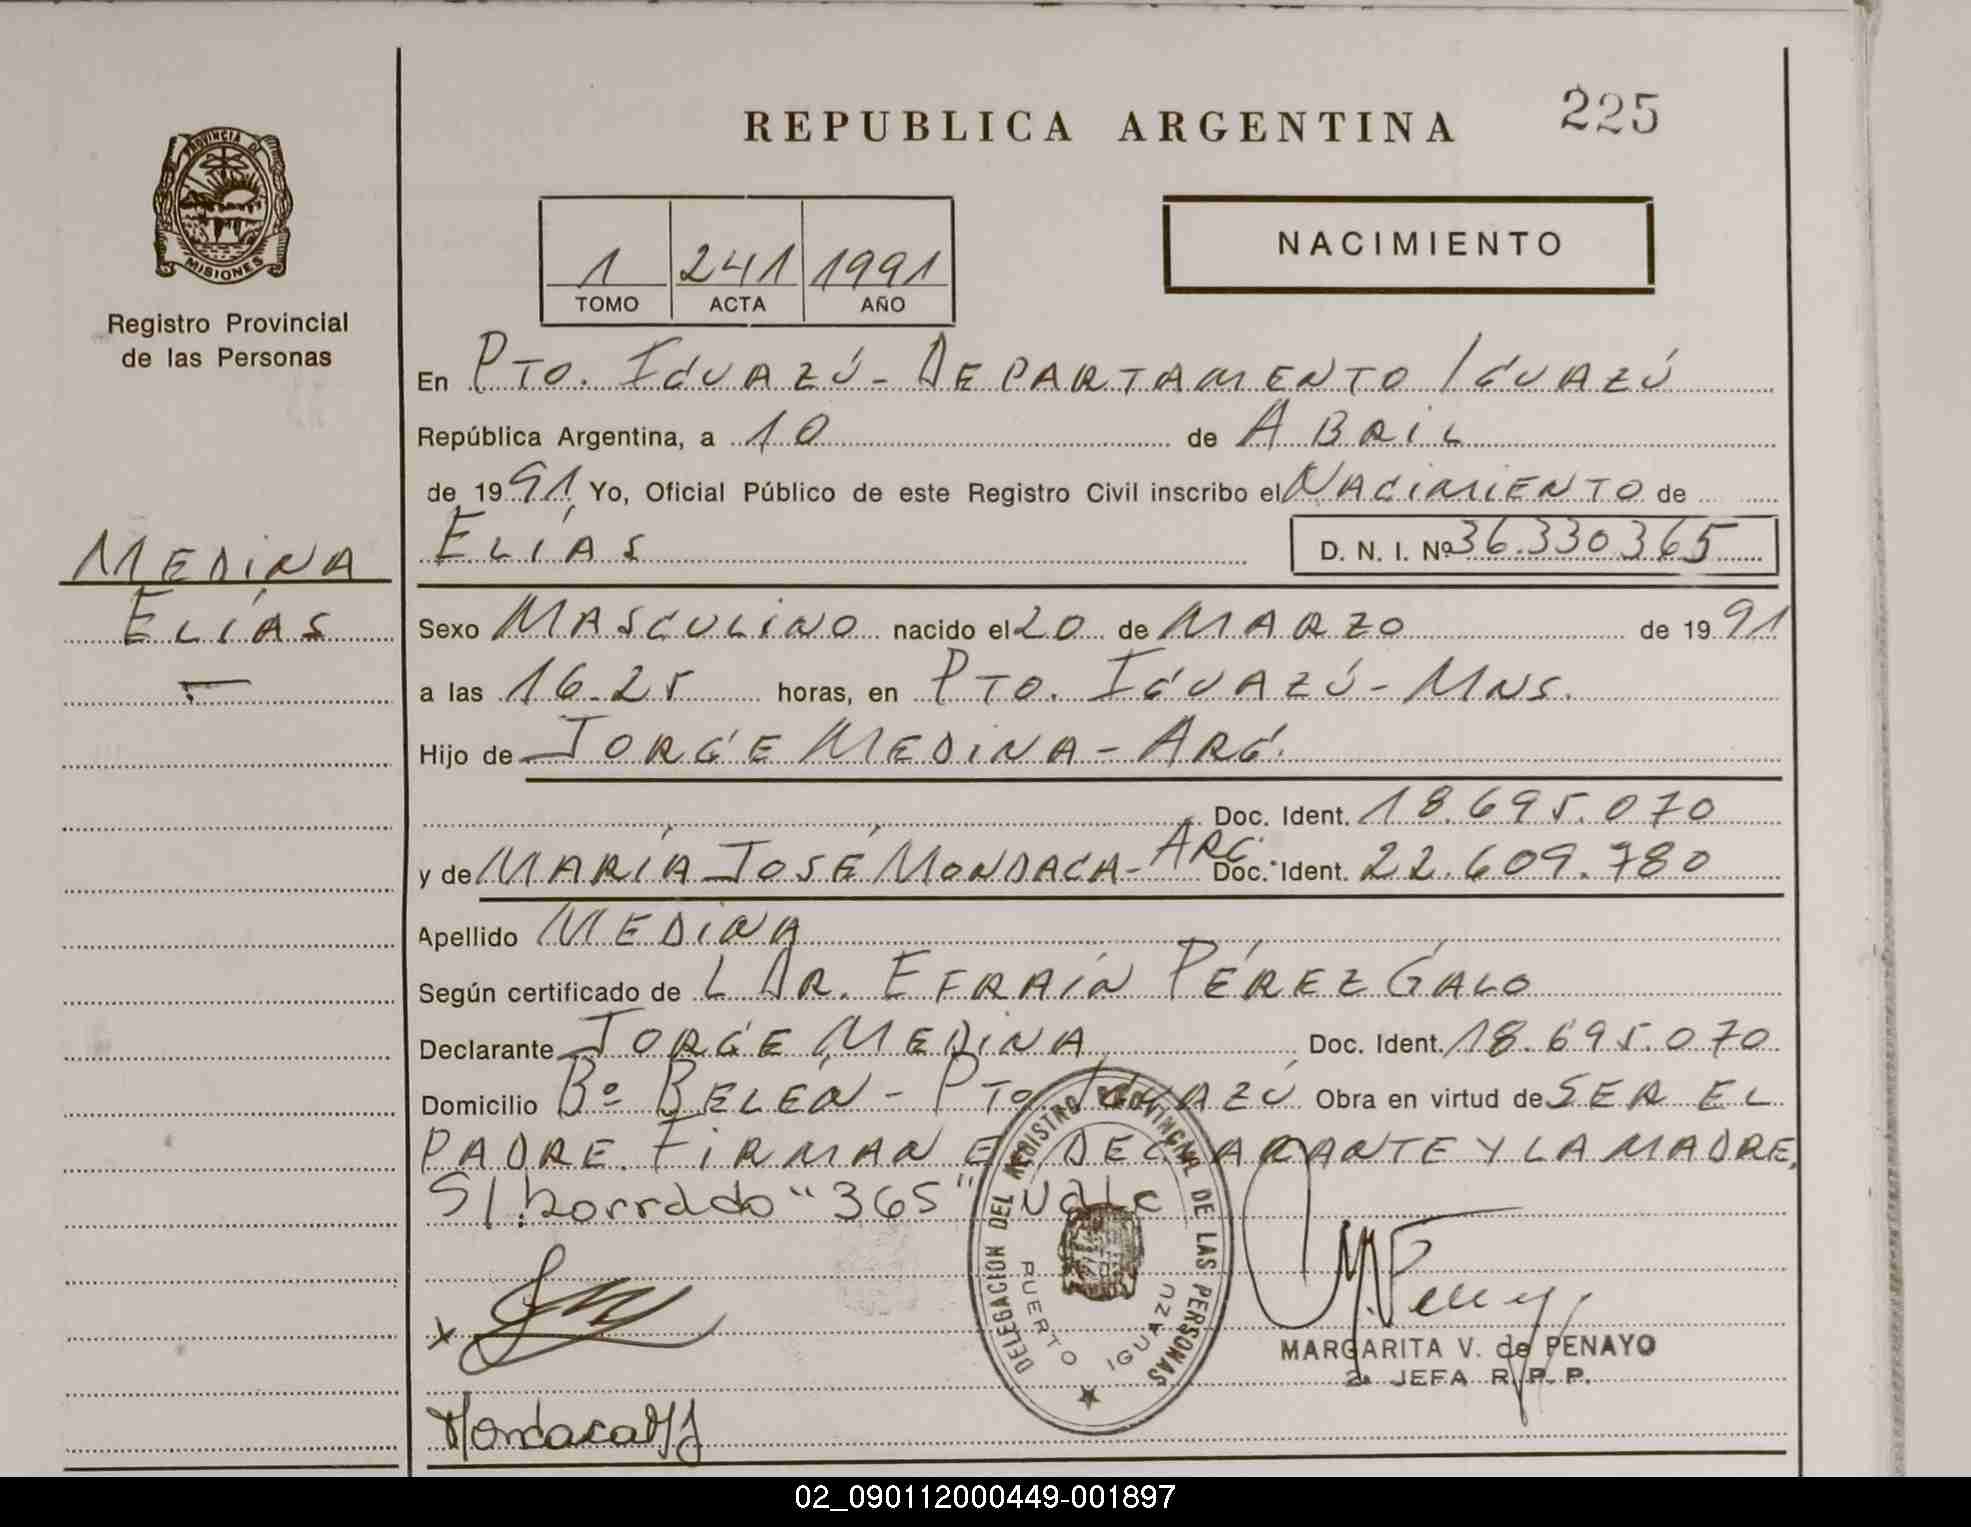 REPUBLICA ARGENTINA
225
PROVINCIA DE
MISIONES
Registro Provincial
de las Personas
1 241 1991
TOMO ACTA AÑO
NACIMIENTO
En PTO. IGUAZÚ - DEPARTAMENTO IGUAZÚ
República Argentina, a 10 de ABRIL
de 1991, Yo, Oficial Público de este Registro Civil inscribo el NACIMIENTO de
MEDINA
ELÍAS
ELÍAS D. N. I. Nº 36.330365
Sexo MASCULINO nacido el 20 de MARZO de 1991
a las 16.25 horas, en PTO. IGUAZÚ - MNS.
Hijo de JORGE MEDINA - ARG.
Doc. Ident. 18.695.070
y de MARÍA JOSÉ MONDACA - ARG. Doc. Ident. 22.609.780
Apellido MEDINA
Según certificado de L DR. EFRAÍN PÉREZ GALO
Declarante JORGE MEDINA Doc. Ident. 18.695.070
Domicilio Bº BELÉN - PTO. IGUAZÚ Obra en virtud de SER EL
PADRE. FIRMAN EL DECLARANTE Y LA MADRE.
S/borrado "365" vale
DELEGACION DEL REGISTRO PROVINCIAL DE LAS PERSONAS
PUERTO IGUAZU
MARGARITA V. de PENAYO
2ª JEFA R. P. P.
Mondaca MJ
02_090112000449-001897